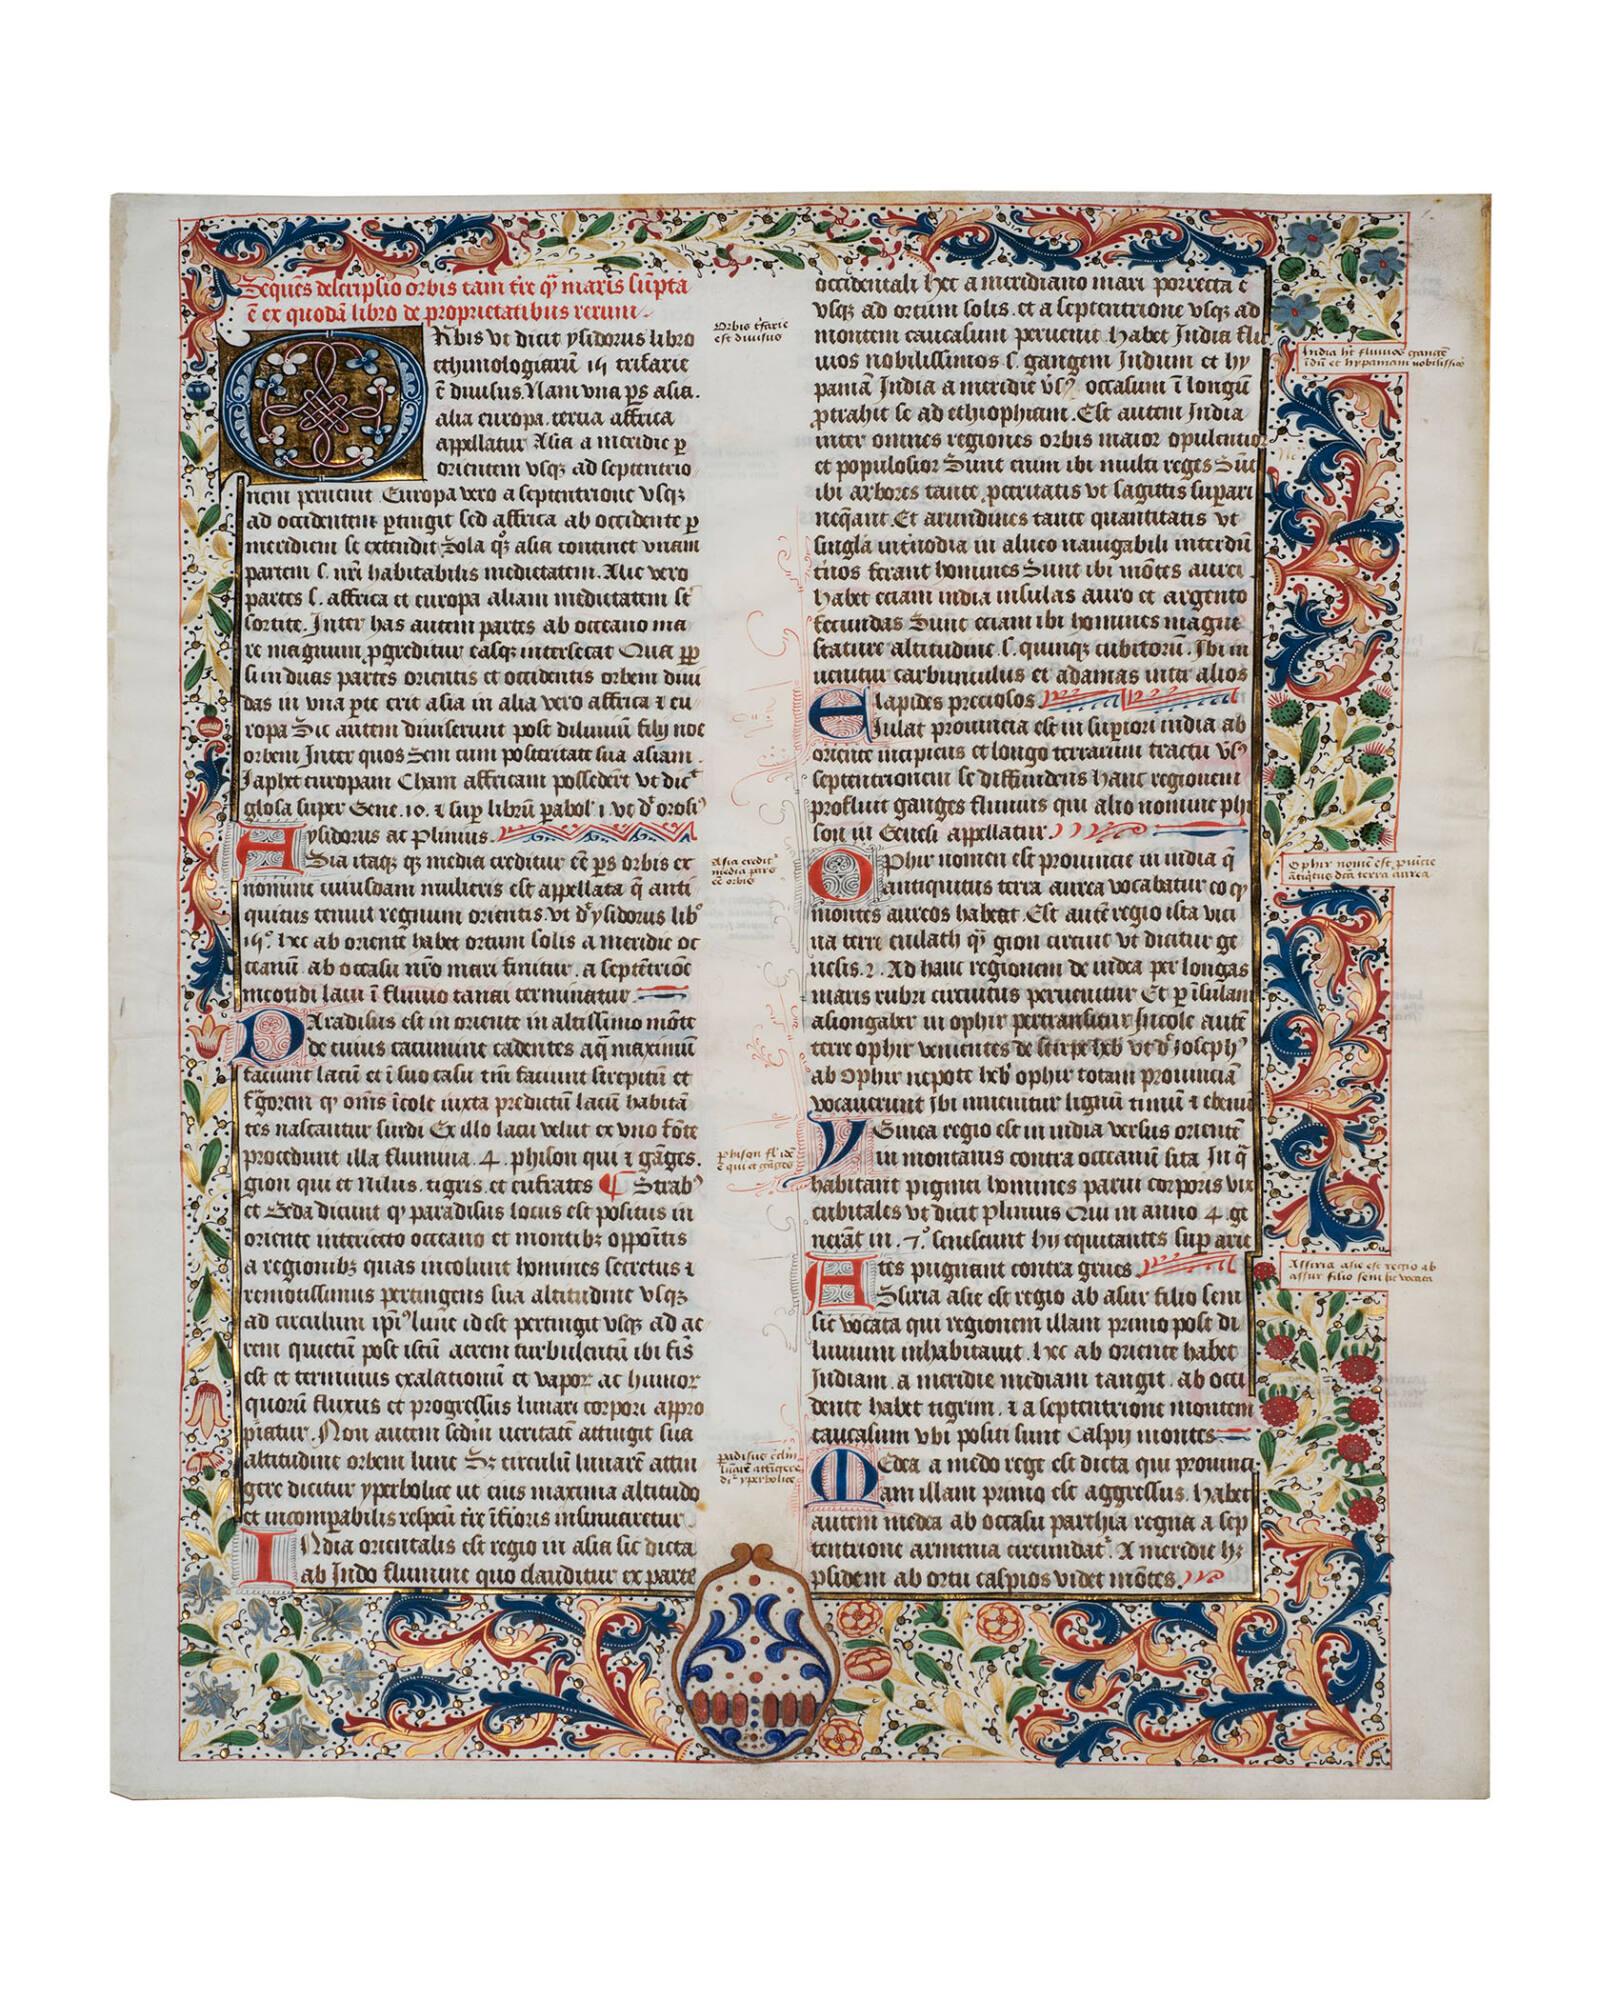 Seques descriptio orbis tam t̄re qͣ maris sūpta
ē ex quodā libro de proprietatibus rerum
ORbis vt dicit ysidorus libro
ethimologiarū 15 trifarie
ē diuisus. Nam vna ps̄ asia.
alia europa. tercia affrica
appellatur Asia a meridie p̲
orientem vsqꝫ ad septentrio
nem peruenit Europa vero a septentrione vsqꝫ
ad occidentem p̲tingit sed affrica ab occidente p̲
meridiem se extendit Sola qꝫ asia continet vnam
partem s. nr̄i habitabilis medietatem. Alie vero
partes s. affrica et europa aliam medietatem st̄
sortite. Inter has autem partes ab occeano ma
re magnum ꝓgreditur easqꝫ intersecat Qua ꝓp
si in duas partes orientis et occidentis orbem diui
das in vna p̲te erit asia in alia vero affrica ⁊ eu
ropa Sic autem diuiserunt post diluuiū filij noe
orbem Inter quos Sem cum posteritate sua asiam
Japhet europam Cham affricam possedert̄ vt dic̄t
glosa super Gene. 10. ⁊ sup̲ librū p̲abol' 1. vt d̄r orosiꝰ
ysidorus ac Plinius.
ASia itaqꝫ qꝫ media creditur ēē ps̄ orbis ex
nomine cuiusdam mulieris est appellata q̄ anti
quitus tenuit regnum orientis vt d̄r ysidorus libº
15º. hec ab oriente habet ortum solis a meridie oc
ceanū ab occasu nr̄o mari finitur. a septētrioe
meotidi lacu ī fluuio tanai terminatur
PAradisus est in oriente in altissimo mōte
de cuius cacumine cadentes aq̄ maximū
faciunt lacū et ī suo casu tm̄ faciunt strepitū et
fr̄gorem qꝫ om̄s īcole iuxta predictū lacū habitā
tes nascantur surdi Ex illo lacu velut ex vno fōte
procedunt illa flumina. 4. phison qui ⁊ gāges.
gion qui et nilus. tigris. et eufrates ¶ Strabꝰ
et Beda dicunt qꝫ paradisus locus est positus in
oriente interiecto occeano et montibꝫ oppoītis
a regionibꝫ quas incolunt homines secretus ⁊
remotissimus pertingens sua altitudine vsqꝫ
ad circulum ip̄iꝰ lune id est pertingit vsqꝫ ad ae
rem quietū post istū aerem turbulentū ibi fīs
est et terminus exalationū et vapor̄ ac humor̄
quorū fluxus et progressus lunari corpori appro
p̄iatur. Non autem scdm̄ veritatē attingit sua
altitudine orbem lune Sꝫ circulū lunarē attin
gere dicitur yperbolice ut eius maxima altitudo
et incomp̲abilis respcū t̄re īf̄ioris insinuaretur
INdia orientalis est regio in asia sic dicta
ab Indo flumine quo clauditur ex parte
occidentali hec a meridiano mari porrecta ē
vsqꝫ ad ortum solis. et a septentrione vsqꝫ ad
montem caucasum peruenit. habet India flu
uios nobilissimos s. gangem Indum et hy
paniā India a meridie v̄sꝫ occasum ī longū
ꝓtrahit se ad ethiophiam. Est autem India
inter omnes regiones orbis maior opulentior
et populosior Sunt enim ibi multi reges Sūt
ibi arbores tante ꝓceritatis vt sagittis sup̲ari
neq̄ant. Et arundines tante quantitatis vt
singl̄a int̄nodia in alueo nauigabili interdū
t̄nos ferant homines Sunt ibi mōtes aurei
habet eciam india insulas auro et argento
fecundas Sunt eciam ibi homines magne
stature altitudine s. quinqꝫ cubitorū. Ibi in
uenitur carbunculus et adamas inter alios
lapides preciosos.
EIulat prouincia est in sup̲iori india ab
oriente incipiens et longo terrarum tractu v̄sꝫ
septentrionem se diffundens hanc regionem
profluit ganges fluuius qui alio nomine phi
son in Genesi appellatur
OPhir nomen est prouincie in india q̄
antiquitus terra aurea vocabatur eo qꝫ
montes aureos habeat. Est autē regio ista vici
na terre euilath qꝫ gion circuit vt dicitur ge
nesis. 2. Ad hanc regionem de iudea per longas
maris rubri circuitus peruenitur Et p̲ īsulam
asiongaber in ophir pertransitur Incole autē
terre ophir venientes de stirpe heb̄ vt d̄r Josephꝰ
ab Ophir nepote heb̄ ophir totam prouinciā
vocauerunt Ibi inuenitur lignū timū ⁊ ebenū
VGinea regio est in india versus orientē
in montanis contra occeanū sita In q̄
habitant pigmei homines parui corporis vix
cubitales vt dicit plinius Qui in anno 4. ge
nerāt in. 7º. senescunt hij equitantes sup̲ arie
tes pugnant contra grues.
ASsiria asie est regio ab asur filio sem
sic vocata qui regionem illam primo post di
luuium inhabitauit. hec ab oriente habet
Indiam. a meridie mediam tangit. ab occi
dente habet tigrim. ⁊ a septentrione montem
caucasum vbi positi sunt Caspij montes
MEdea a medo rege est dicta qui prouinci
am illam primo est aggressus. habet
autem medea ab occasu parthia regna a sep
tentrione armenia circundatʳ. A meridie hꝫ
p̲sidem ab ortu caspios videt mōtes.
Orbis t̄farie
est diuisus
Asia creditʳ
media pars
ēē orbis
phison fl' idē
ē qui et gāges
padisus
lūarē attīgere
di yperbolice
India ht̄ fluuios gangē
īdū et hypaniam nobilissīos
Ophir nomē est prouīcie
ātiqͥtus dc̄a terra aurea
Assiria asie est regio ab
assur filio sem sic vocata